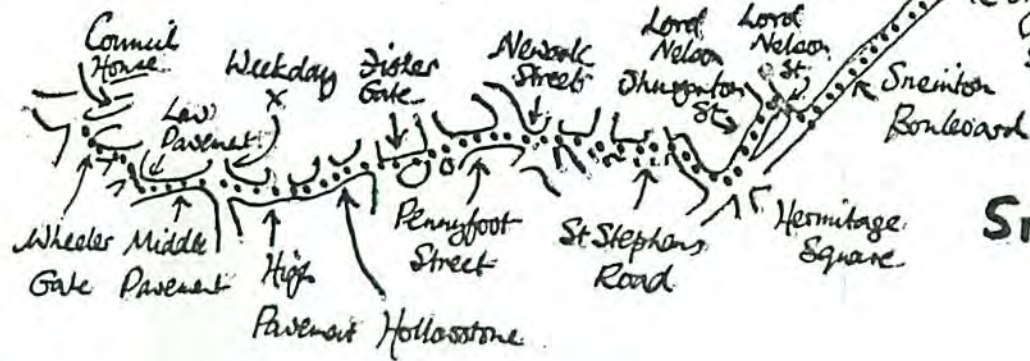 Council
House
Weekday
X
Fisher
Gate
Newark
Street
Lord
Nelson
St
Lord
Nelson
St.
Low
Pavement
Sneinton
Boulevard
Wheeler
Gate
Middle
Pavement
High
Pavement
Hollowstone
Pennyfoot
Street
St Stephens
Road
Hermitage
Square